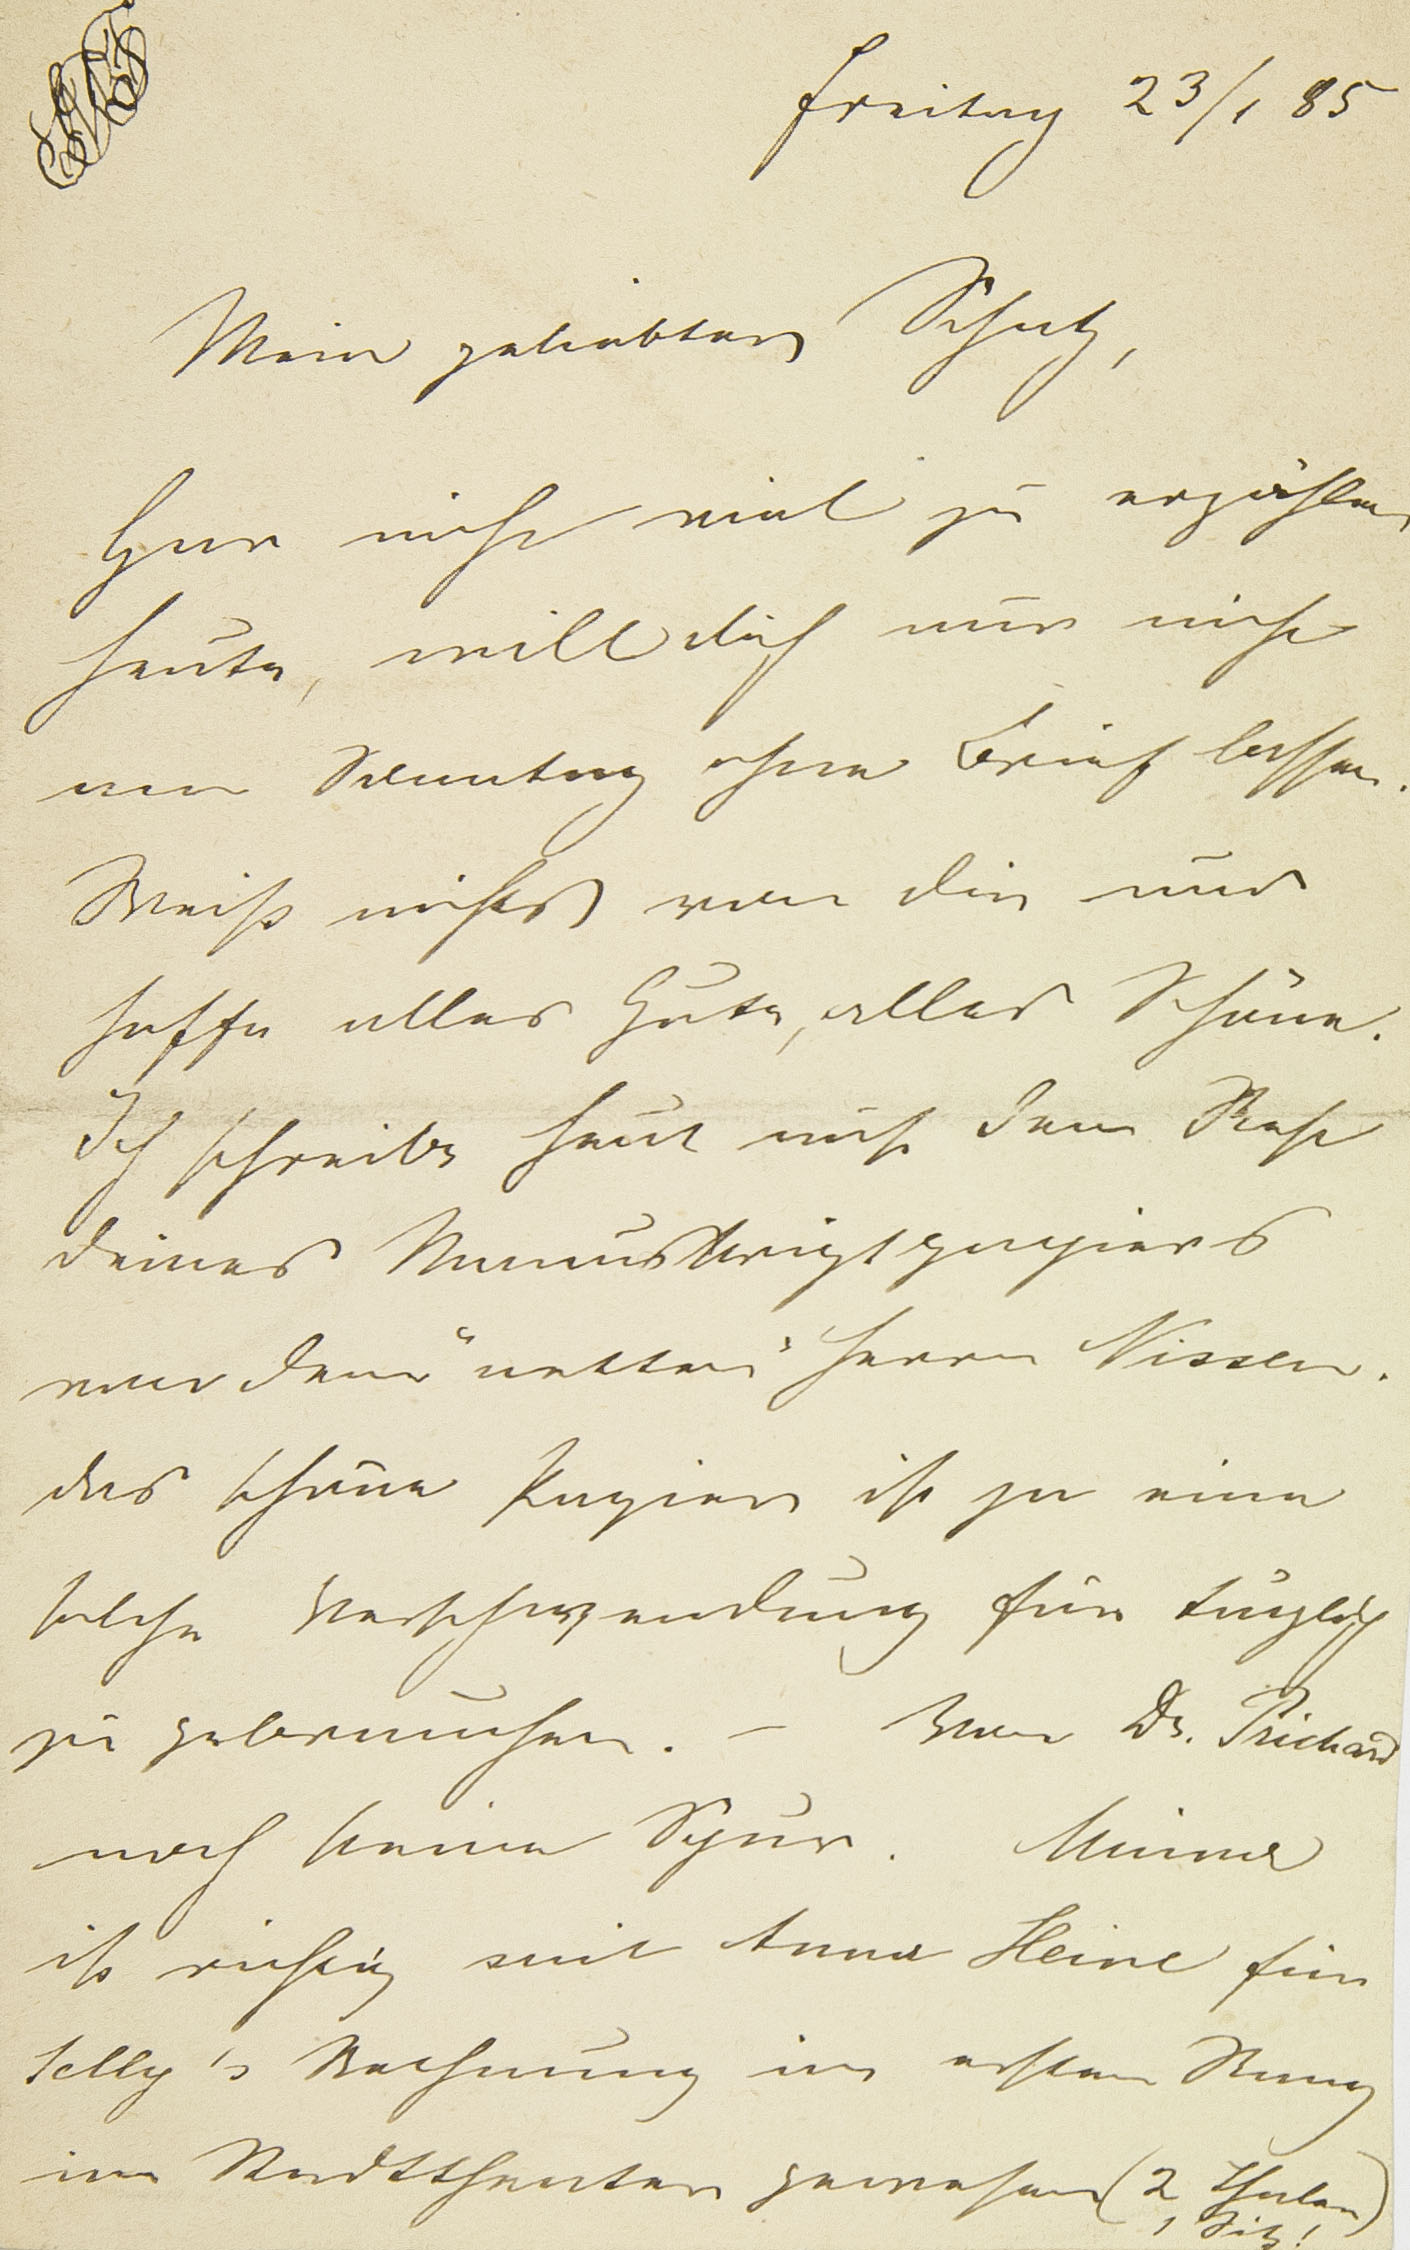 Freitag 23/1 85
Mein geliebter Schatz,
Gar nicht viel zu erzählen
heute, will dich nur nicht
am Sonntag ohne Brief lassen.
Weiß nichts von dir und
hoffe alles Gute, alles Schöne.
Ich schreibe heut auf dem Rest
deines Manuskriptpapiers
von dem "netten" Herrn Nissen.
das schöne Papier ist ja eine
solche Verschwendung für täglich
zu gebrauchen. – Von Dr. Prichard
noch keine Spur. Minna
ist richtig mit Anna Heine für
Selly's Rechnung im ersten Rang
im Stadttheater gewesen (2 Thaler
1 Sitz!)